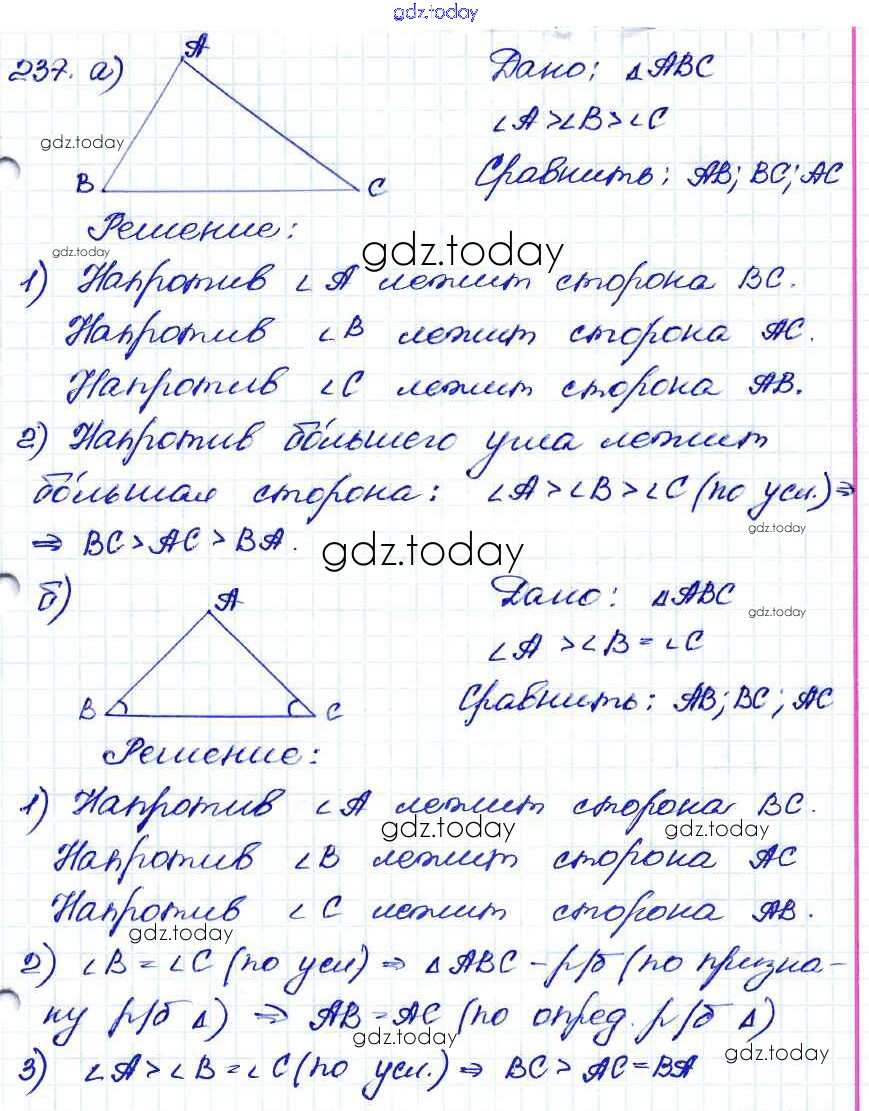 gdz.today
237. а) A Дано: △ABC
∠A>∠B>∠C
gdz.today
B C Сравнить: AB; BC; AC
Решение:
gdz.today gdz.today
1) Напротив ∠A лежит сторона BC.
Напротив ∠B лежит сторона AC.
Напротив ∠C лежит сторона AB.
2) Напротив бо́льшего угла лежит
бо́льшая сторона: ∠A>∠B>∠C (по усл.) ⇒
gdz.today
⇒ BC>AC>BA.
gdz.today
б) A Дано: △ABC
gdz.today
∠A >∠B = ∠C
B C Сравнить: AB; BC; AC
Решение:
1) Напротив ∠A лежит сторона BC.
gdz.today gdz.today
Напротив ∠B лежит сторона AC
Напротив ∠C лежит сторона AB.
gdz.today
2) ∠B = ∠C (по усл) ⇒ △ABC – р/б (по призна-
ку р/б △) ⇒ AB = AC (по опред. р/б △)
gdz.today gdz.today
3) ∠A>∠B=∠C (по усл.) ⇒ BC> AC=BA